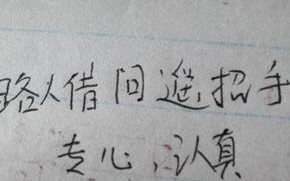 路人借问遥招手
专心,认真